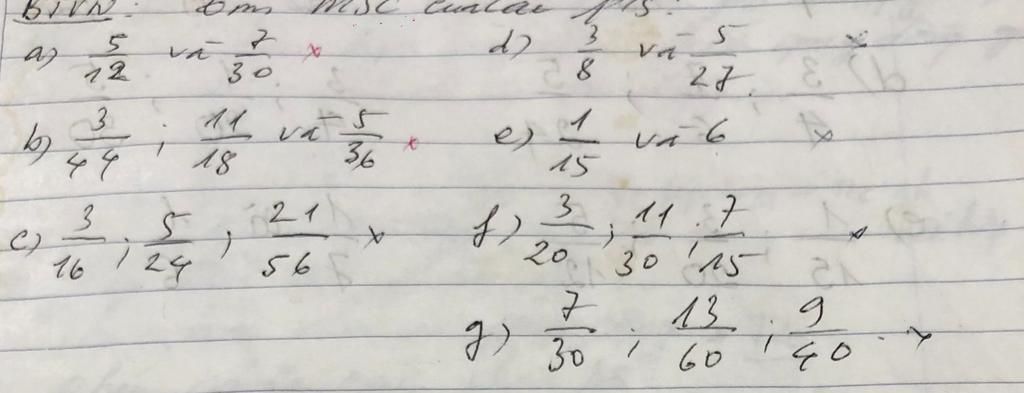 BTVN: Tìm MSC của các p/s:
a) 5/12 và 7/30 x
d) 3/8 và 5/27 x
b) 3/44 ; 11/18 và 5/36 x
e) 1/15 và 6 x
c) 3/16 ; 5/24 ; 21/56 x
f) 3/20 ; 11/30 ; 7/15 x
g) 7/30 ; 13/60 ; 9/40 x